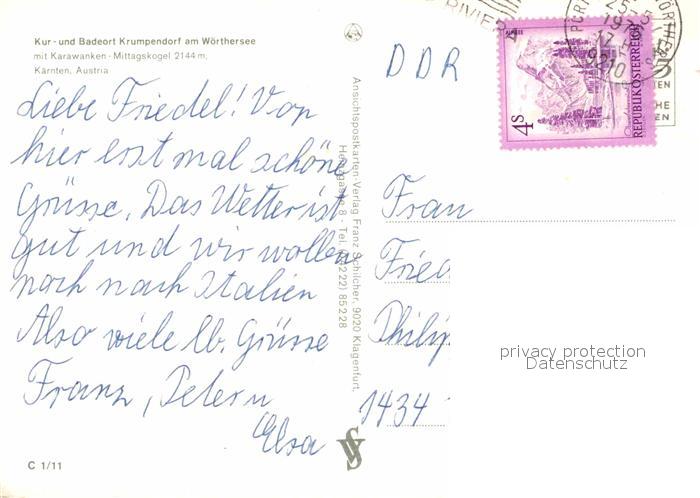 Kur- und Badeort Krumpendorf am Wörthersee
mit Karawanken - Mittagskogel 2144 m,
Kärnten, Austria
Liebe Friedel! Von
hier erst mal schöne
Grüsse. Das Wetter ist
gut und wir wollen
noch nach Italien
Also viele lb. Grüsse
Franz, Peter u
Elsa
C 1/11
Ansichtspostkarten-Verlag Franz Schilcher, 9020 Klagenfurt,
Tel. (04222) 85228
RIVIERA
9210
4s
REPUBLIK ÖSTERREICH
DDR
Frau
Fried
Philip
1434
privacy protection
Datenschutz